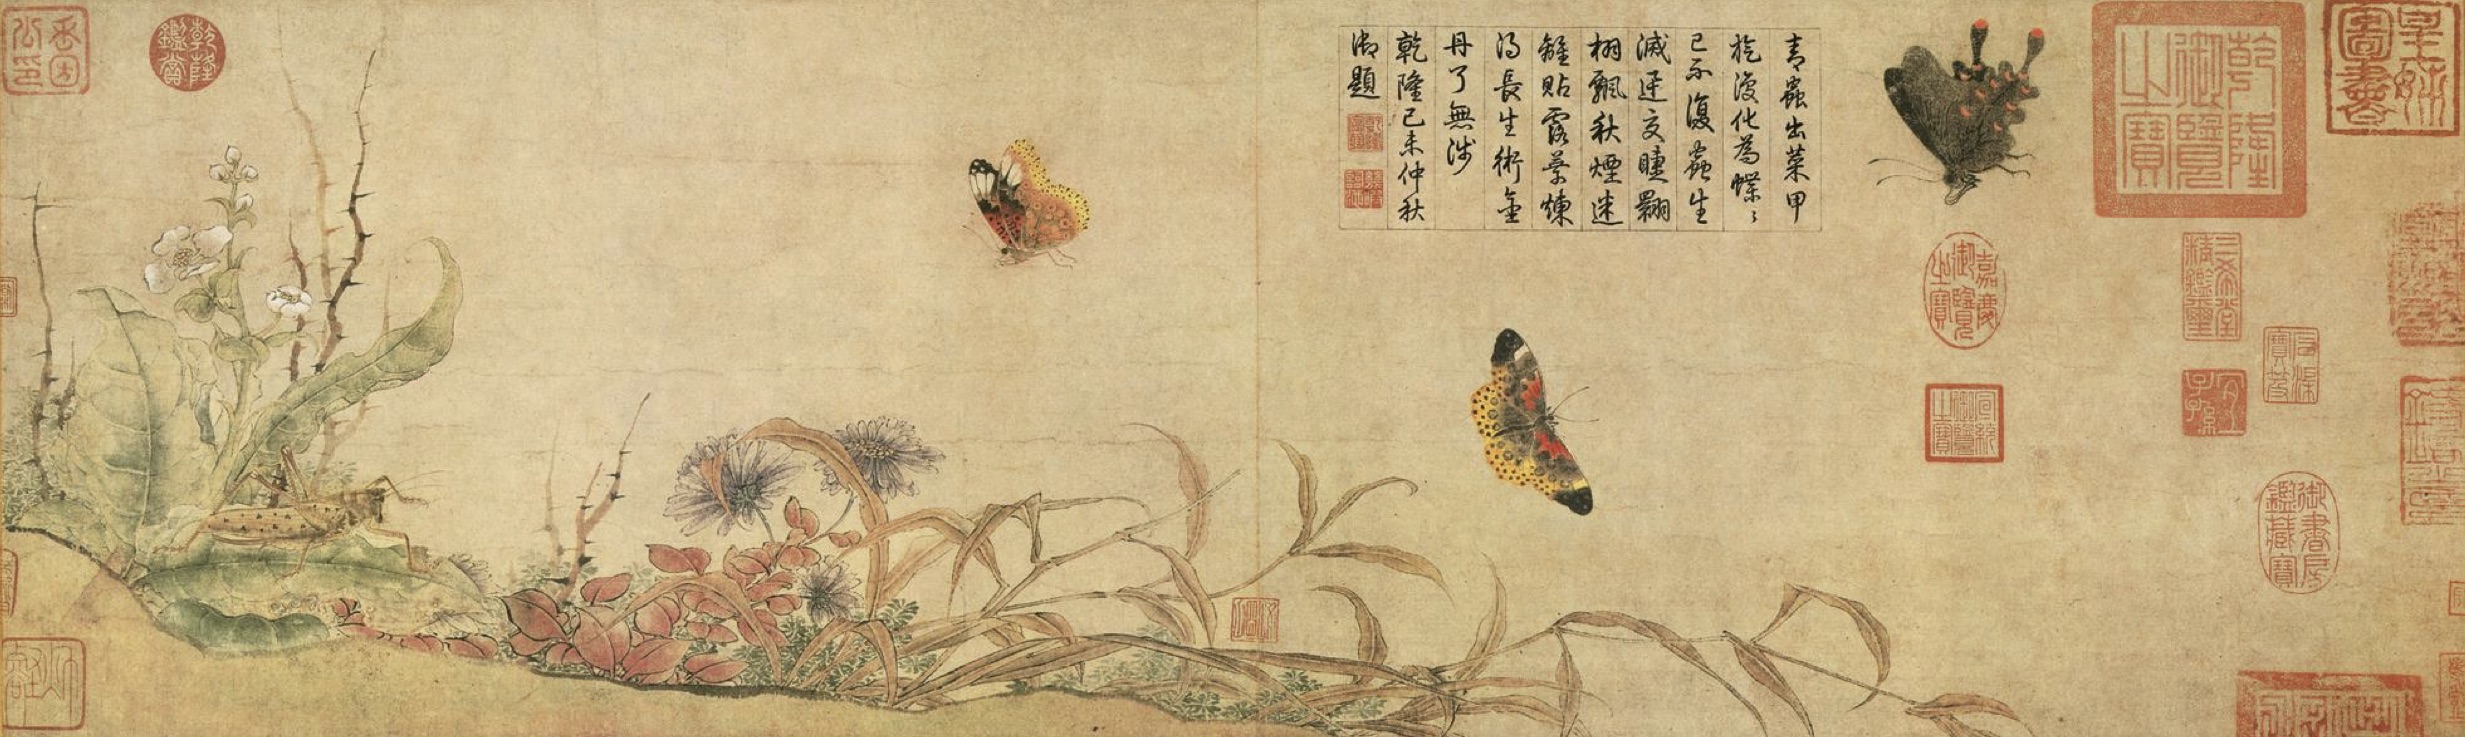 皇姊圖書
乾隆御覽之寶
青蟲出菜甲
旋復化為蝶〻
已不復蟲生
滅迅交睫翾
栩飄秋煙迷
離貼露葉煉
得長生術金
丹了無涉
乾隆己未仲秋
御題
乾隆鑑賞
三希堂精鑑璽
嘉慶御覽之寶
石渠寶笈
宜子孫
宣統御覽之寶
御書房鑑藏寶